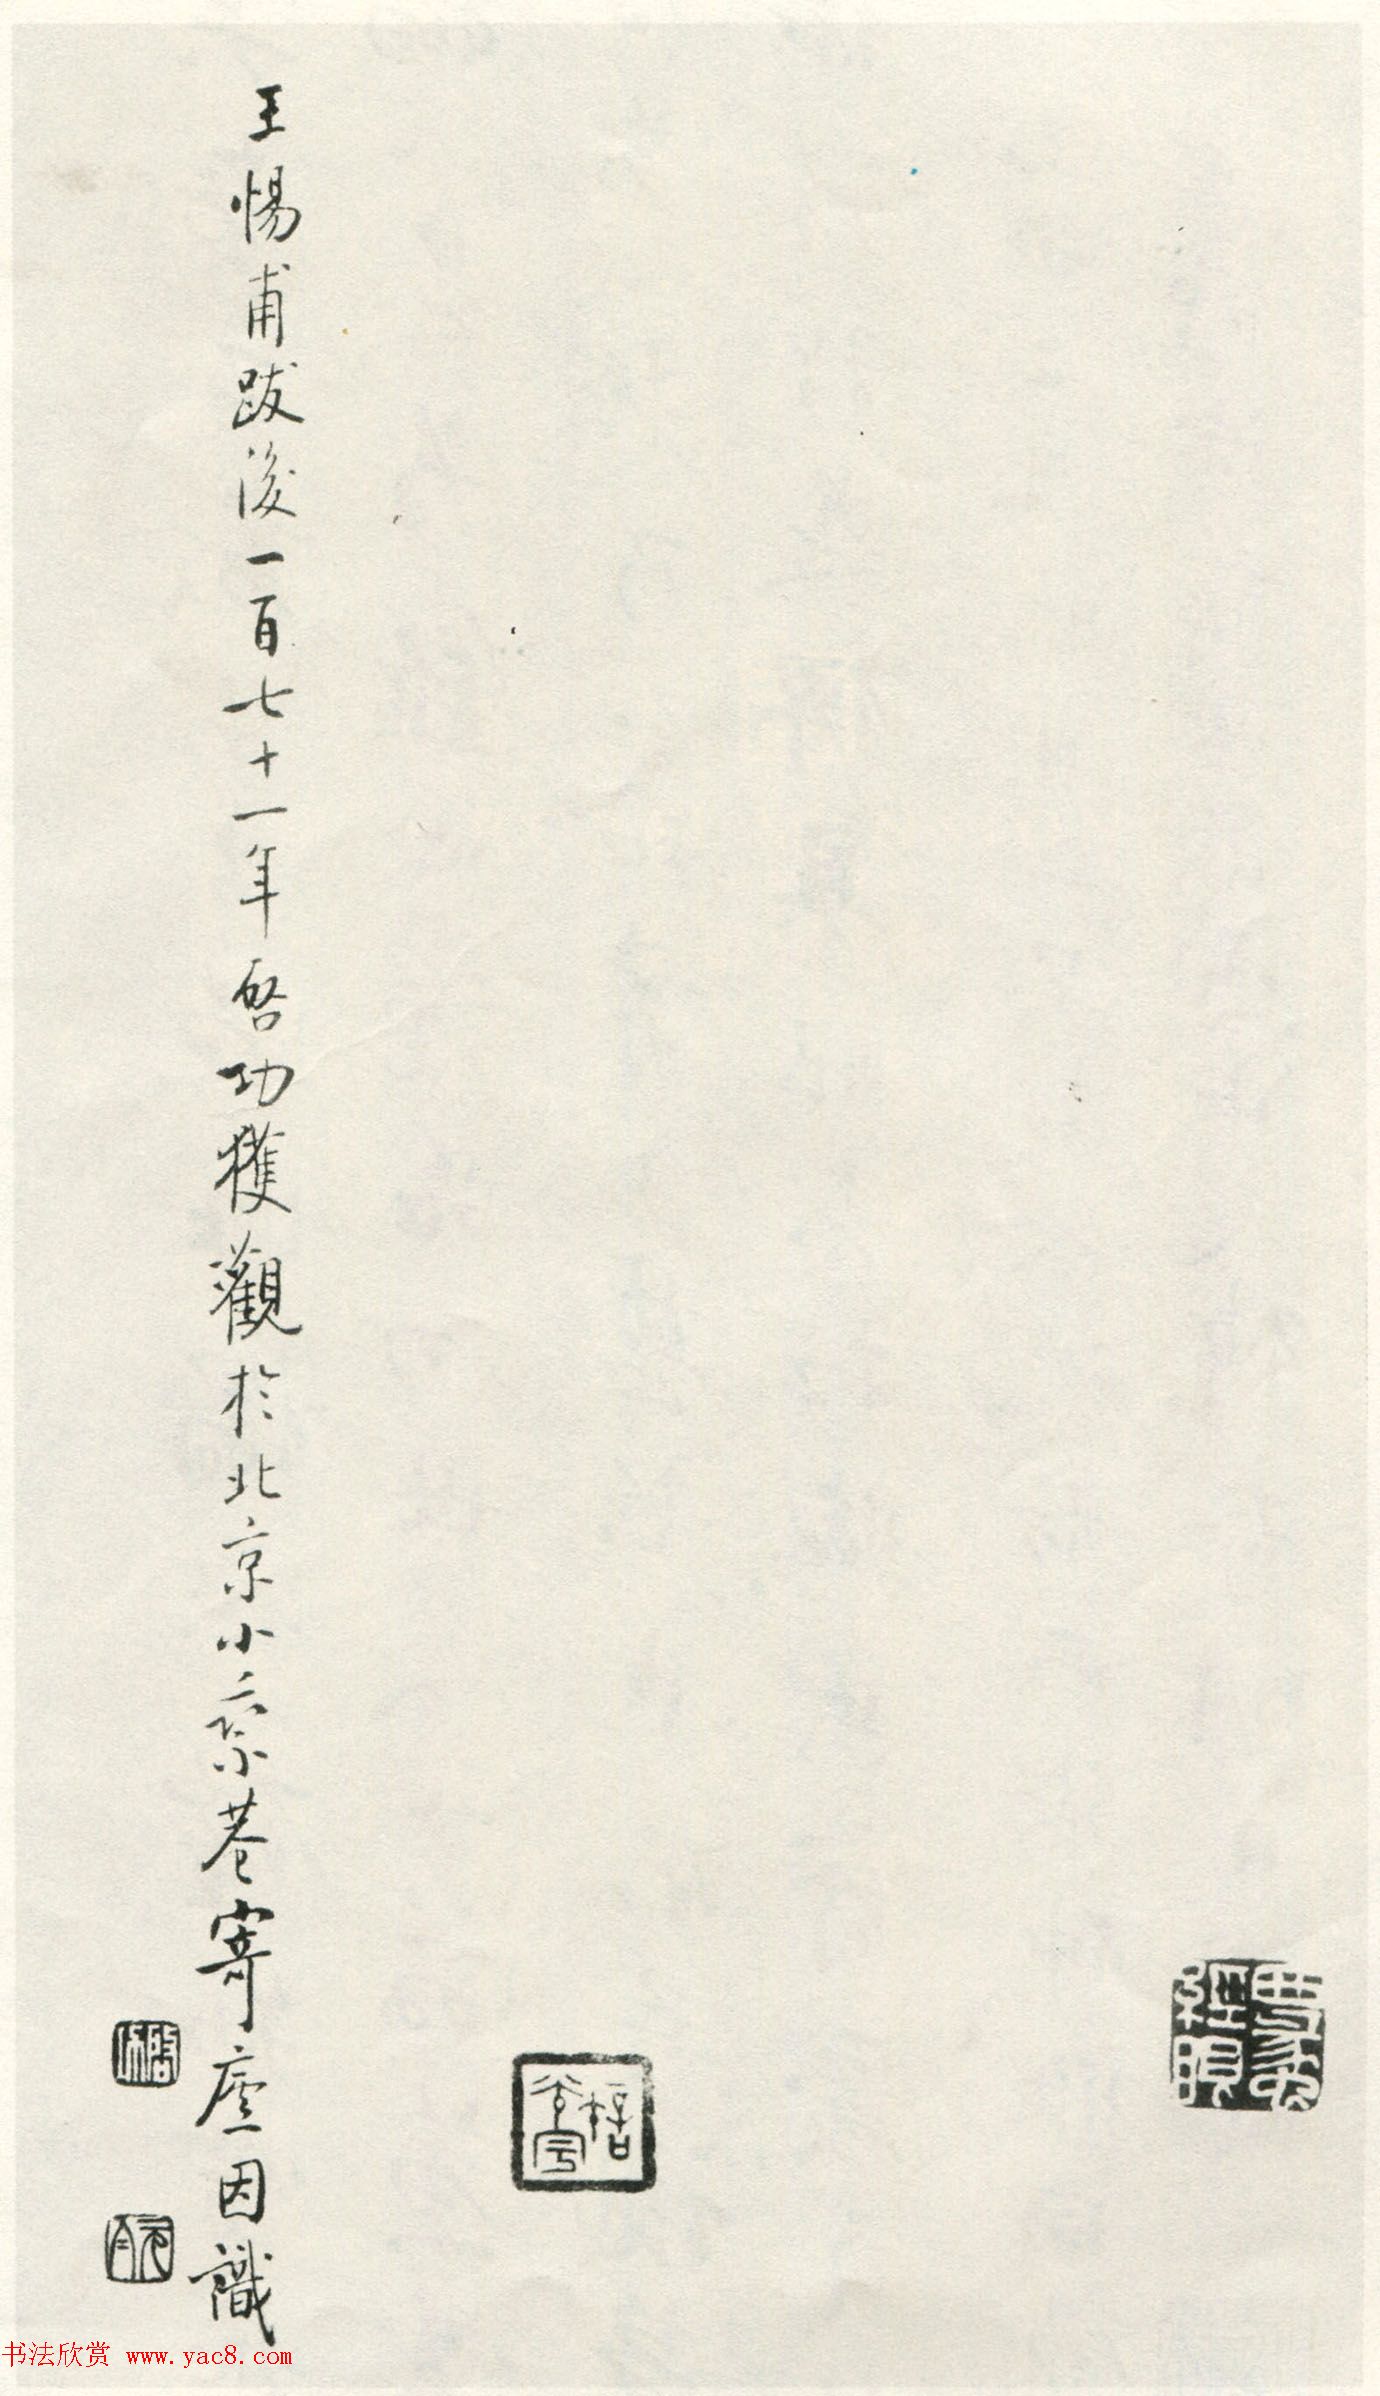 經眼
王惕甫跋後一百七十一年啓功獲觀於北京小乘巷寄廬因識
啓功
元白
书法欣赏 www.yac8.com